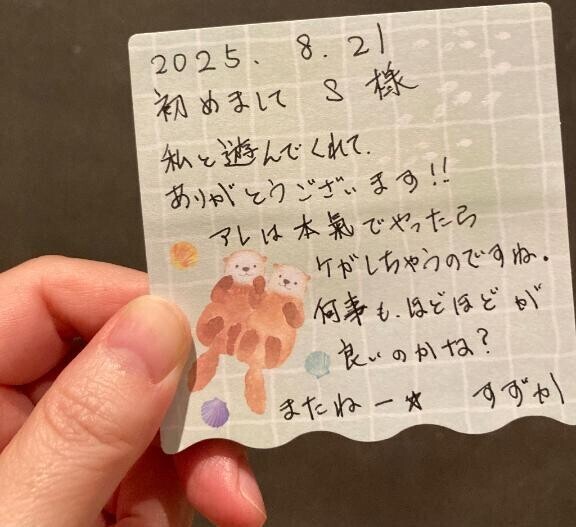 2025. 8. 21
初めまして S 様
私と遊んでくれて、
ありがとうございます!!
アレは本氣でやったら
ケガしちゃうのですね。
何事も、ほどほどが
良いのかな?
またねー☆ すずか